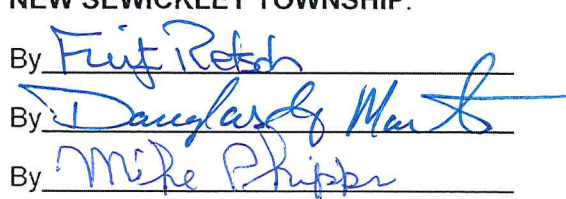 NEW SEWICKLEY TOWNSHIP:
By Retsch
By Douglas
By Mike Phipps